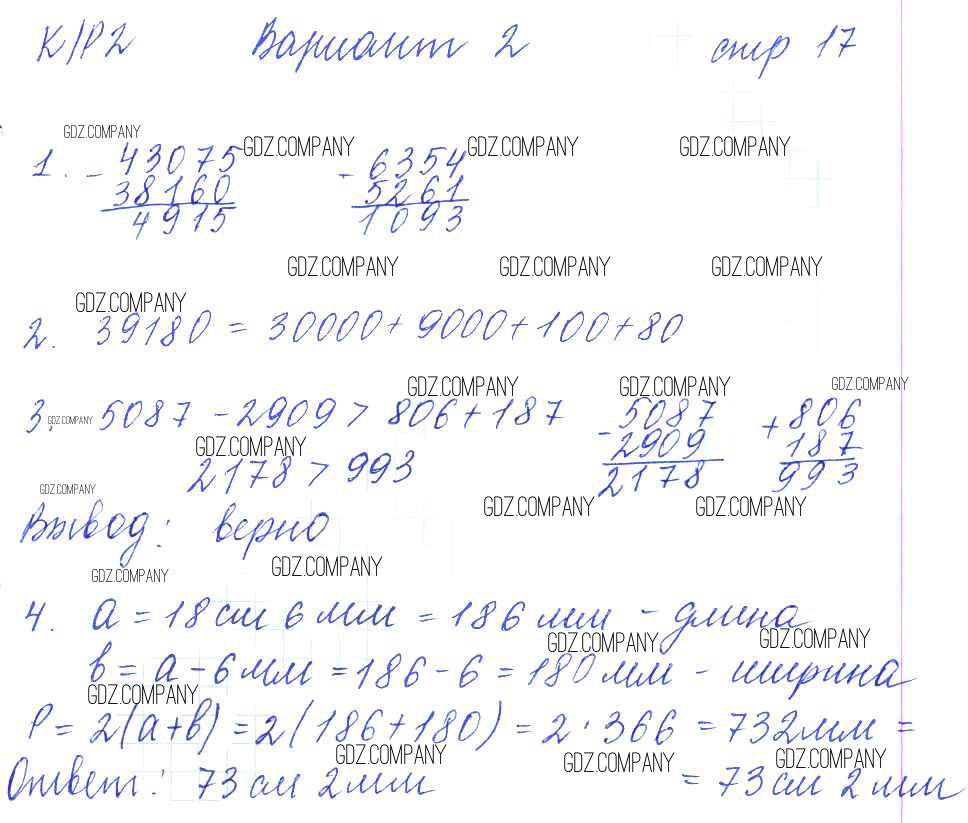 К/Р2 Вариант 2 стр 17
GDZ.COMPANY
1. - 43075 GDZ.COMPANY - 6354 GDZ.COMPANY GDZ.COMPANY
38160 5261
4915 1093
GDZ.COMPANY GDZ.COMPANY GDZ.COMPANY
GDZ.COMPANY
2. 39180 = 30000 + 9000 + 100 + 80
GDZ.COMPANY GDZ.COMPANY GDZ.COMPANY
3. GDZ.COMPANY 5087 - 2909 > 806 + 187 - 5087 + 806
GDZ.COMPANY 2909 187
2178 > 993 2178 993
GDZ.COMPANY GDZ.COMPANY GDZ.COMPANY
Вывод: верно
GDZ.COMPANY GDZ.COMPANY
4. a = 18 см 6 мм = 186 мм - длина
GDZ.COMPANY GDZ.COMPANY
в = a - 6 мм = 186 - 6 = 180 мм - ширина
GDZ.COMPANY
P = 2(a+в) = 2(186+180) = 2·366 = 732 мм =
GDZ.COMPANY GDZ.COMPANY GDZ.COMPANY
Ответ: 73 см 2 мм = 73 см 2 мм